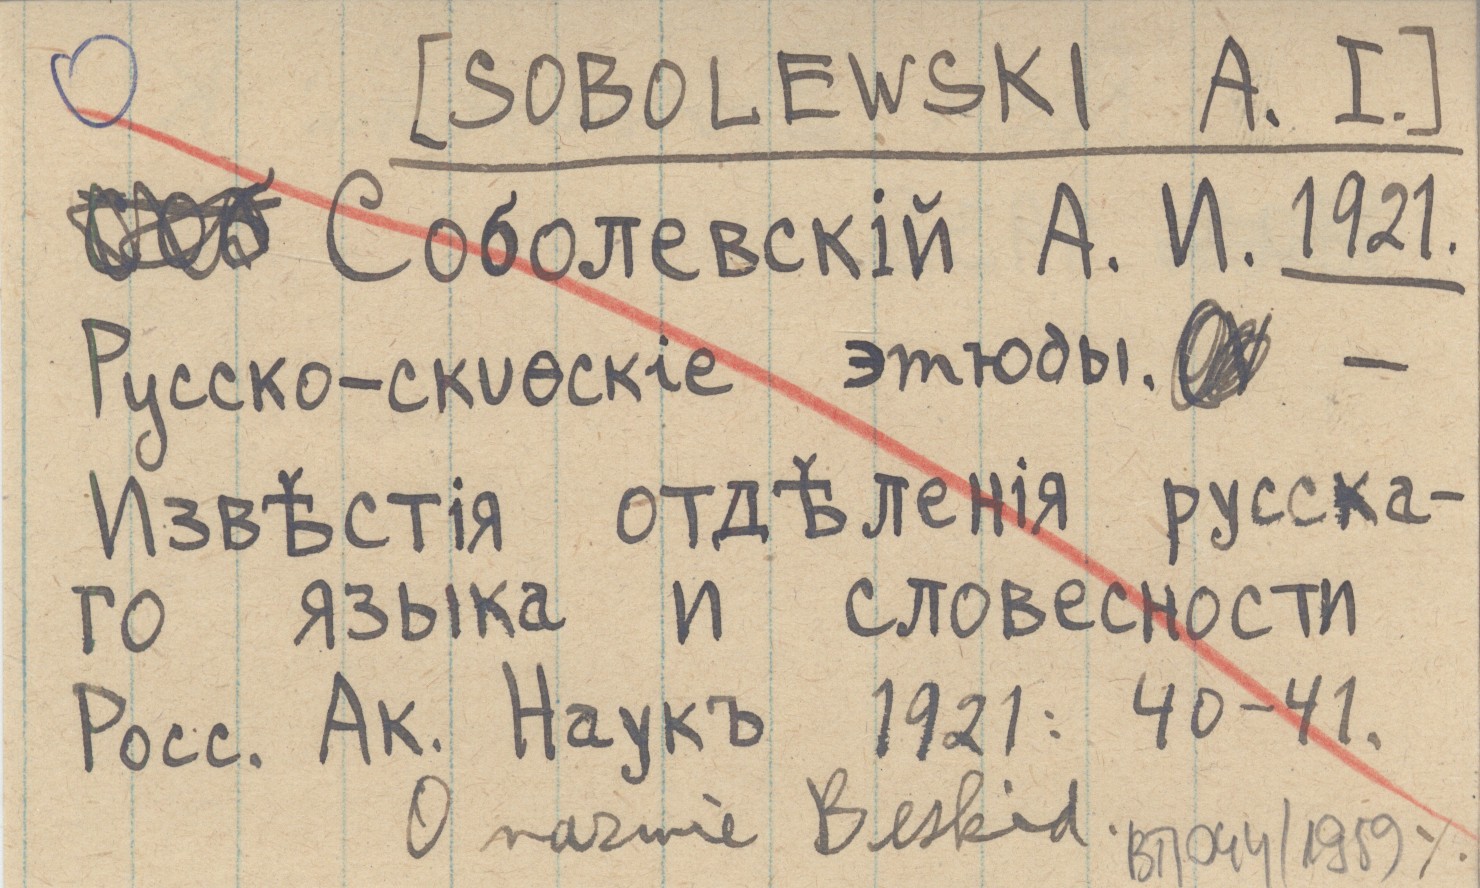 [SOBOLEWSKI A. I.]
Соболевскій А. И. 1921.
Русско-скиѳскіе этюды. —
Извѣстія отдѣленія русска-
го языка и словесности
Росс. Ак. Наукъ 1921: 40-41.
O nazwie Beskid.